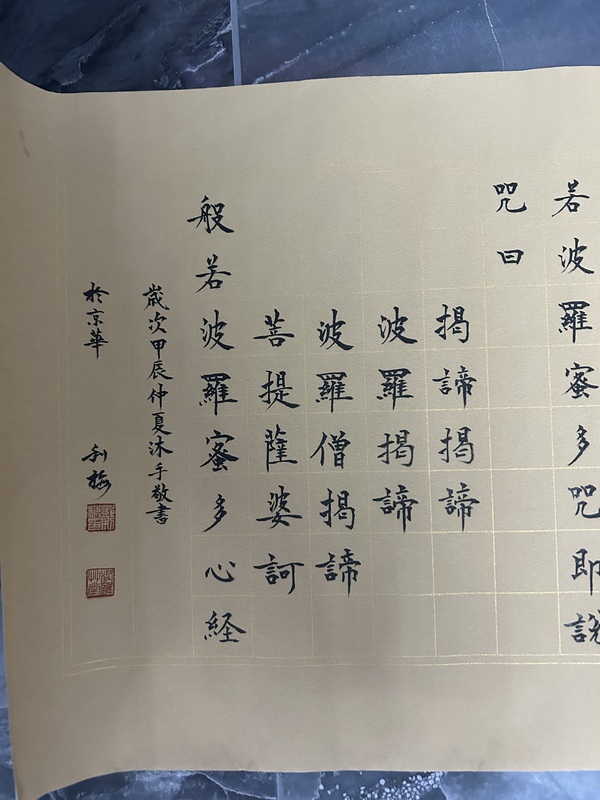 若波羅蜜多咒即說
咒曰
揭諦揭諦
波羅揭諦
波羅僧揭諦
菩提薩婆訶
般若波羅蜜多心経
歲次甲辰仲夏沐手敬書
於京華